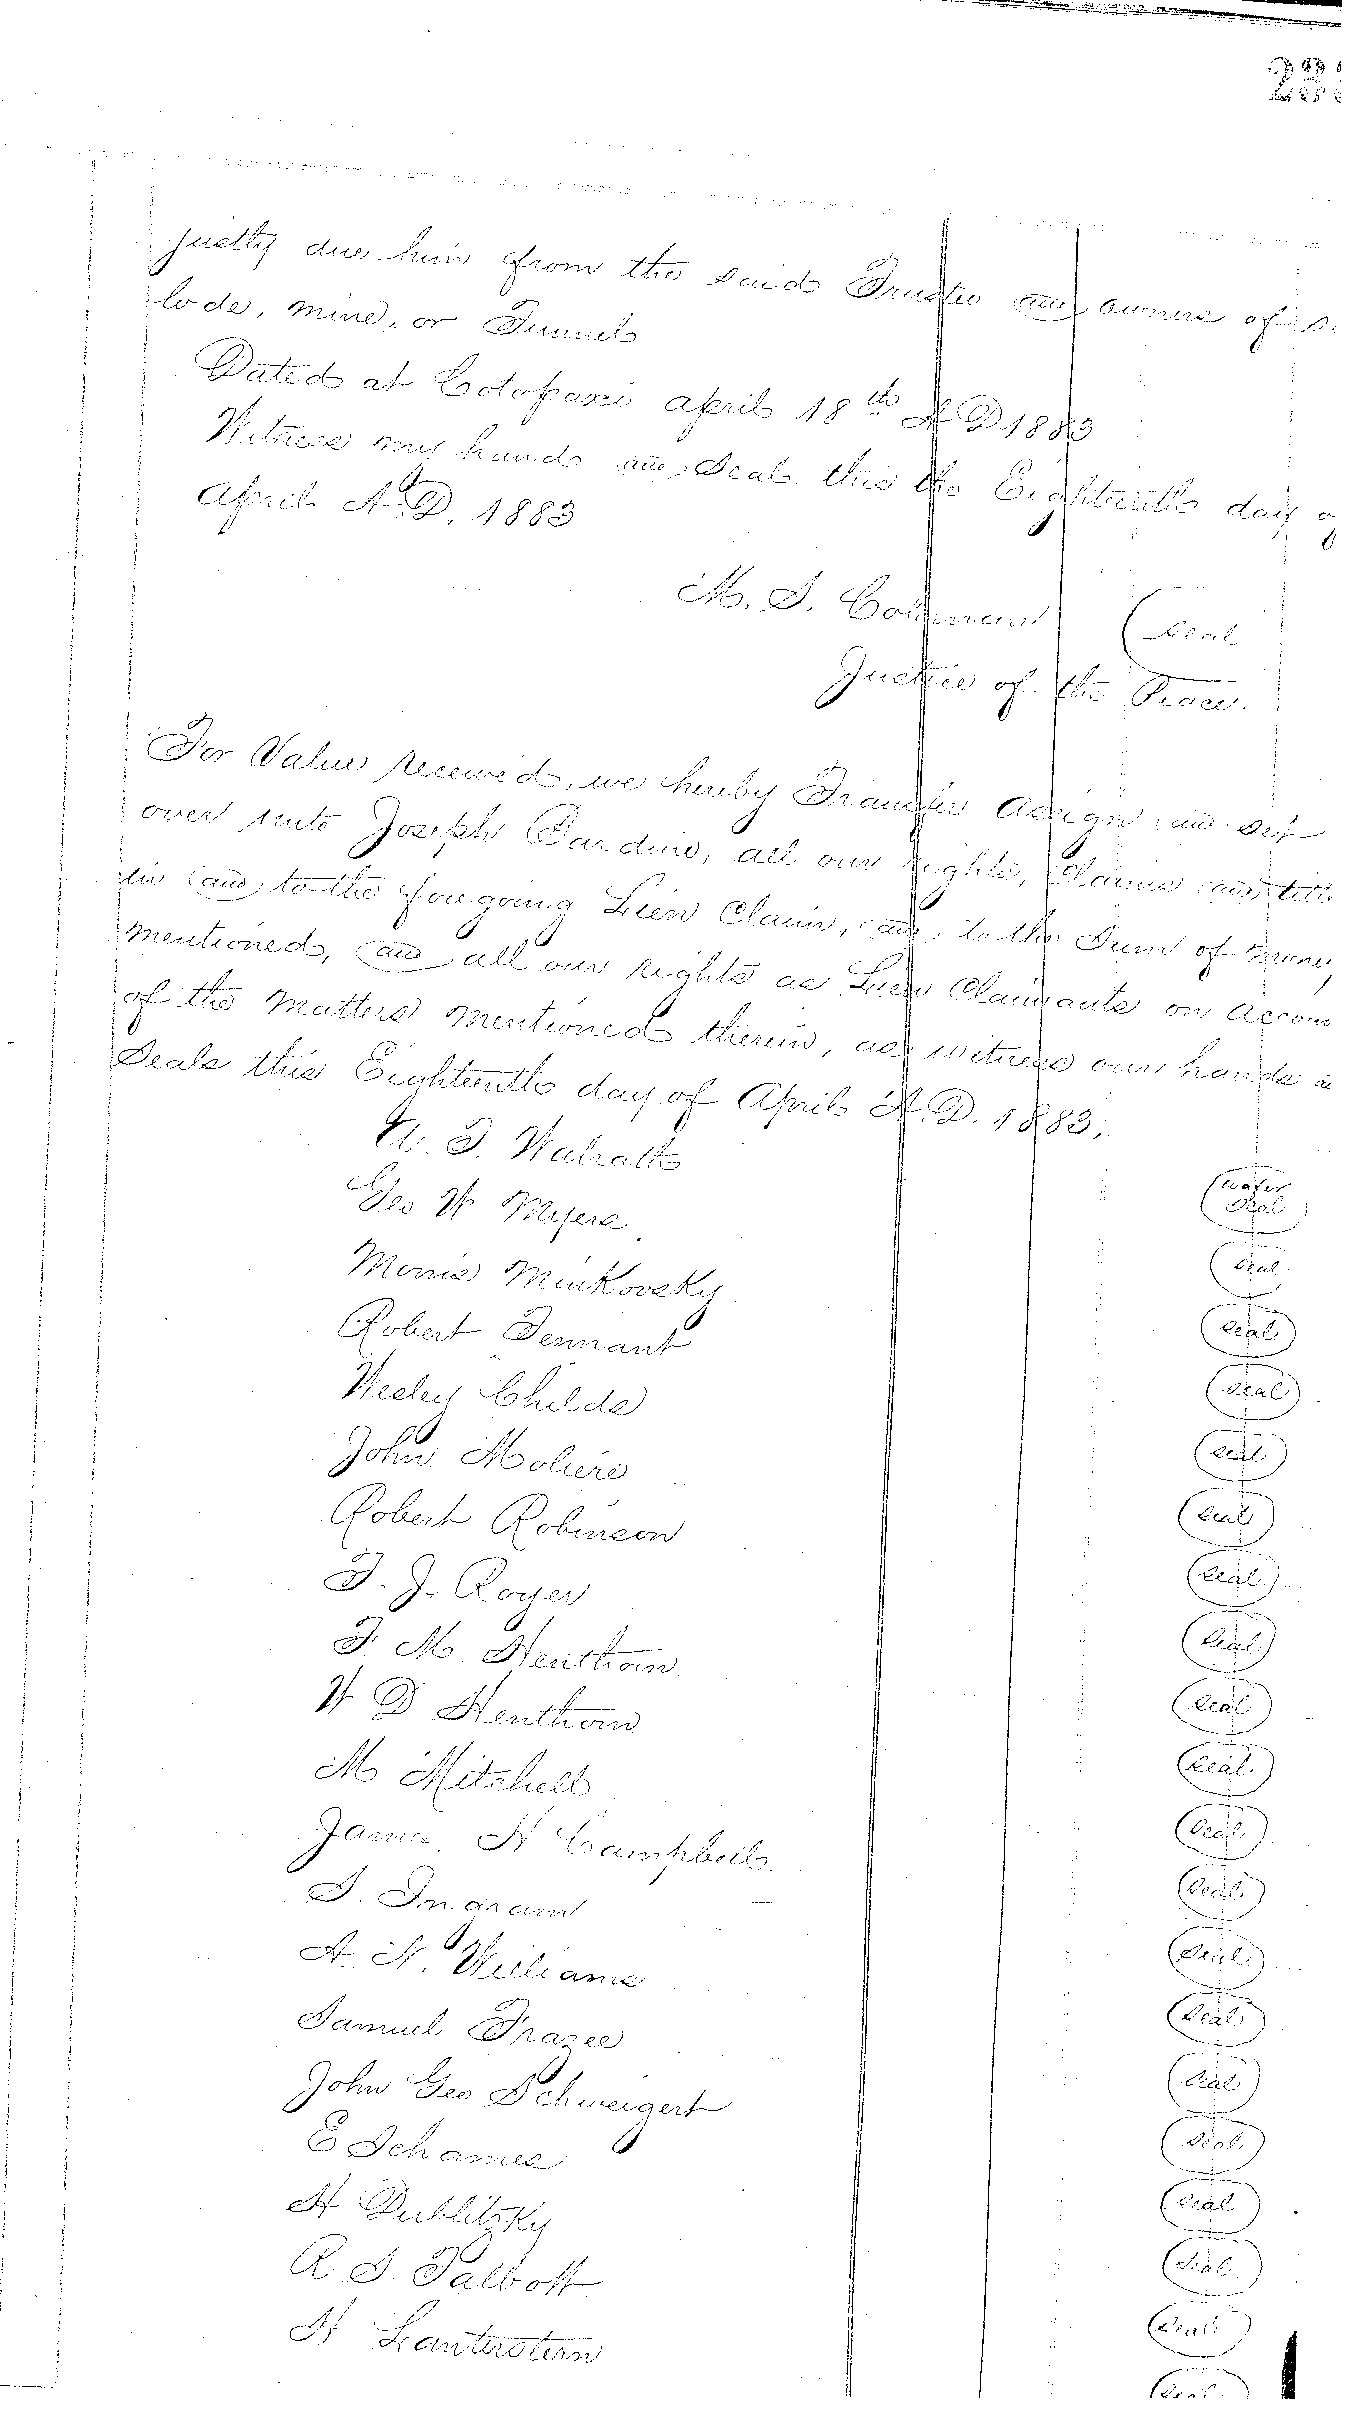 justly due him from the said Trustee and owners of
lode, mine, or Tunnel
Dated at Cotopaxi April 18th A D 1883
Witness my hand and Seal this the Eighteenth day of
April A.D. 1883
M. S. Coleman Seal
Justice of the Peace.
For Value received, we hereby Transfer Assign and set
over unto Joseph Pardine, all our rights, Claims and title
in and to the foregoing Lien Claim, and to the Sum of money
mentioned, and all our rights as Lien Claimants on
of the Matters mentioned therein, as witness our hands
Seals this Eighteenth day of April A.D. 1883.
W. T. Walrath wafer Seal
Geo W Myers Seal
Morris Minkovsky Seal
Robert Tennant Seal
Wesley Childs Seal
John Moliere Seal
Robert Robinson Seal
T. J. Royer Seal
F. M. Henthorn Seal
W D Henthorn Seal
M Mitchell Seal
James H Campbell Seal
S. Ingram Seal
A. N. Williams Seal
Samuel Frazee Seal
John Geo Schweigert Seal
E Schames Seal
H Dublitzky Seal
R S. Talbott Seal
H Lauterstern Seal
Seal